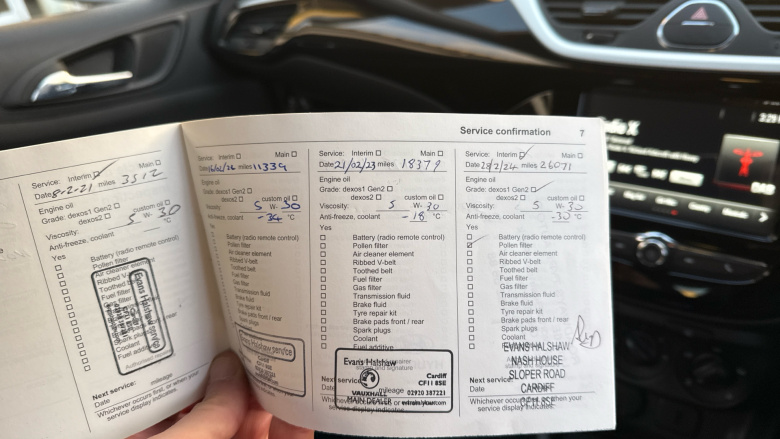 Service confirmation 7
Service: Interim Main
Date 8-2-21 miles 3512
Engine oil
Grade: dexos1 Gen2
dexos2 custom oil
Viscosity: 5 W- 30
Anti-freeze, coolant °C
Yes
Battery (radio remote control)
Pollen filter
Air cleaner element
Ribbed V-belt
Toothed belt
Fuel filter
Evans Halshaw
Next service: mileage
Date
Whichever occurs first, or when your
service display indicates.
Service: Interim Main
Date miles 11339
Engine oil
Grade: dexos1 Gen2
dexos2 custom oil
Viscosity: 5 W- 30
Anti-freeze, coolant -34 °C
Yes
Battery (radio remote control)
Pollen filter
Air cleaner element
Ribbed V-belt
Toothed belt
Fuel filter
Gas filter
Transmission fluid
Brake fluid
Tyre repair kit
Brake pads front / rear
Spark plugs
Evans Halshaw
Service: Interim Main
Date 21/02/23 miles 18379
Engine oil
Grade: dexos1 Gen2
dexos2 custom oil
Viscosity: 5 W- 30
Anti-freeze, coolant -18 °C
Yes
Battery (radio remote control)
Pollen filter
Air cleaner element
Ribbed V-belt
Toothed belt
Fuel filter
Gas filter
Transmission fluid
Brake fluid
Tyre repair kit
Brake pads front / rear
Spark plugs
Coolant
Fuel additive
Evans Halshaw
Cardiff
CF11 8SE
VAUXHALL
MAIN DEALER
02920 387221
evanshalshaw.com
Service: Interim Main
Date 28/2/24 miles 26071
Engine oil
Grade: dexos1 Gen2
dexos2 custom oil
Viscosity: 5 W- 30
Anti-freeze, coolant -30 °C
Yes
Battery (radio remote control)
Pollen filter
Air cleaner element
Ribbed V-belt
Toothed belt
Fuel filter
Gas filter
Transmission fluid
Brake fluid
Tyre repair kit
Brake pads front / rear
Spark plugs
Coolant
EVANS HALSHAW
NASH HOUSE
SLOPER ROAD
CARDIFF
CF11 8SE
Next service:
Date
Whichever occurs first, or when your
service display indicates.